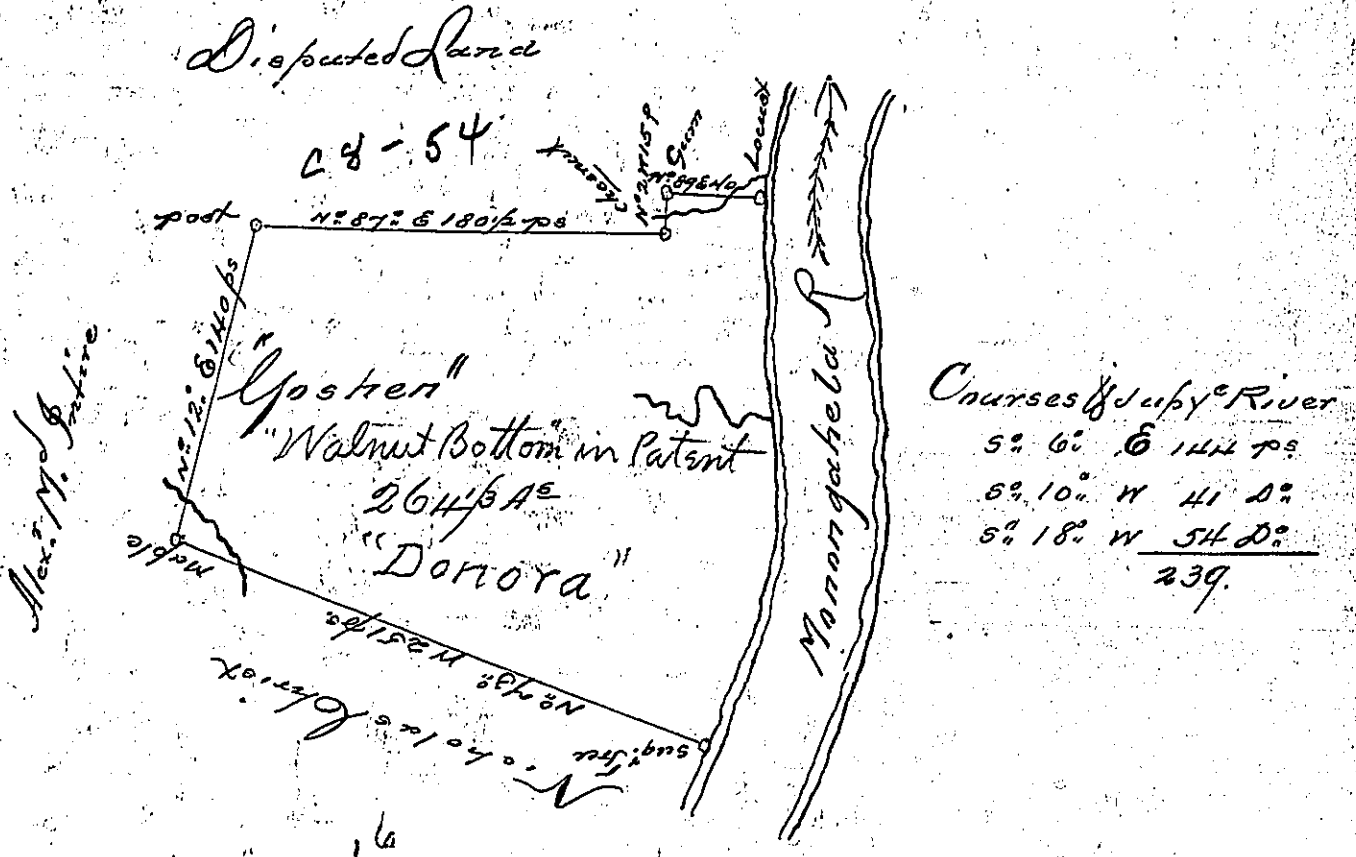 Disputed Land
C8-54
Chesnut
No 2 W 15 P
Gum
No 89 E 40
Locust
post
No 87° E 180 1/2 ps
No 12° E 140 ps
Alexr McIntire
"Goshen"
"Walnut Bottom" in Patent
264 1/3 As
"Donora"
Maple
No 73° W 251 ps
Sugr Tree
Nicholas Christ
Monongahela R
Courses up ye River
So 6° E 144 ps
So 10° W 41 Do
So 18° W 54 Do
239.